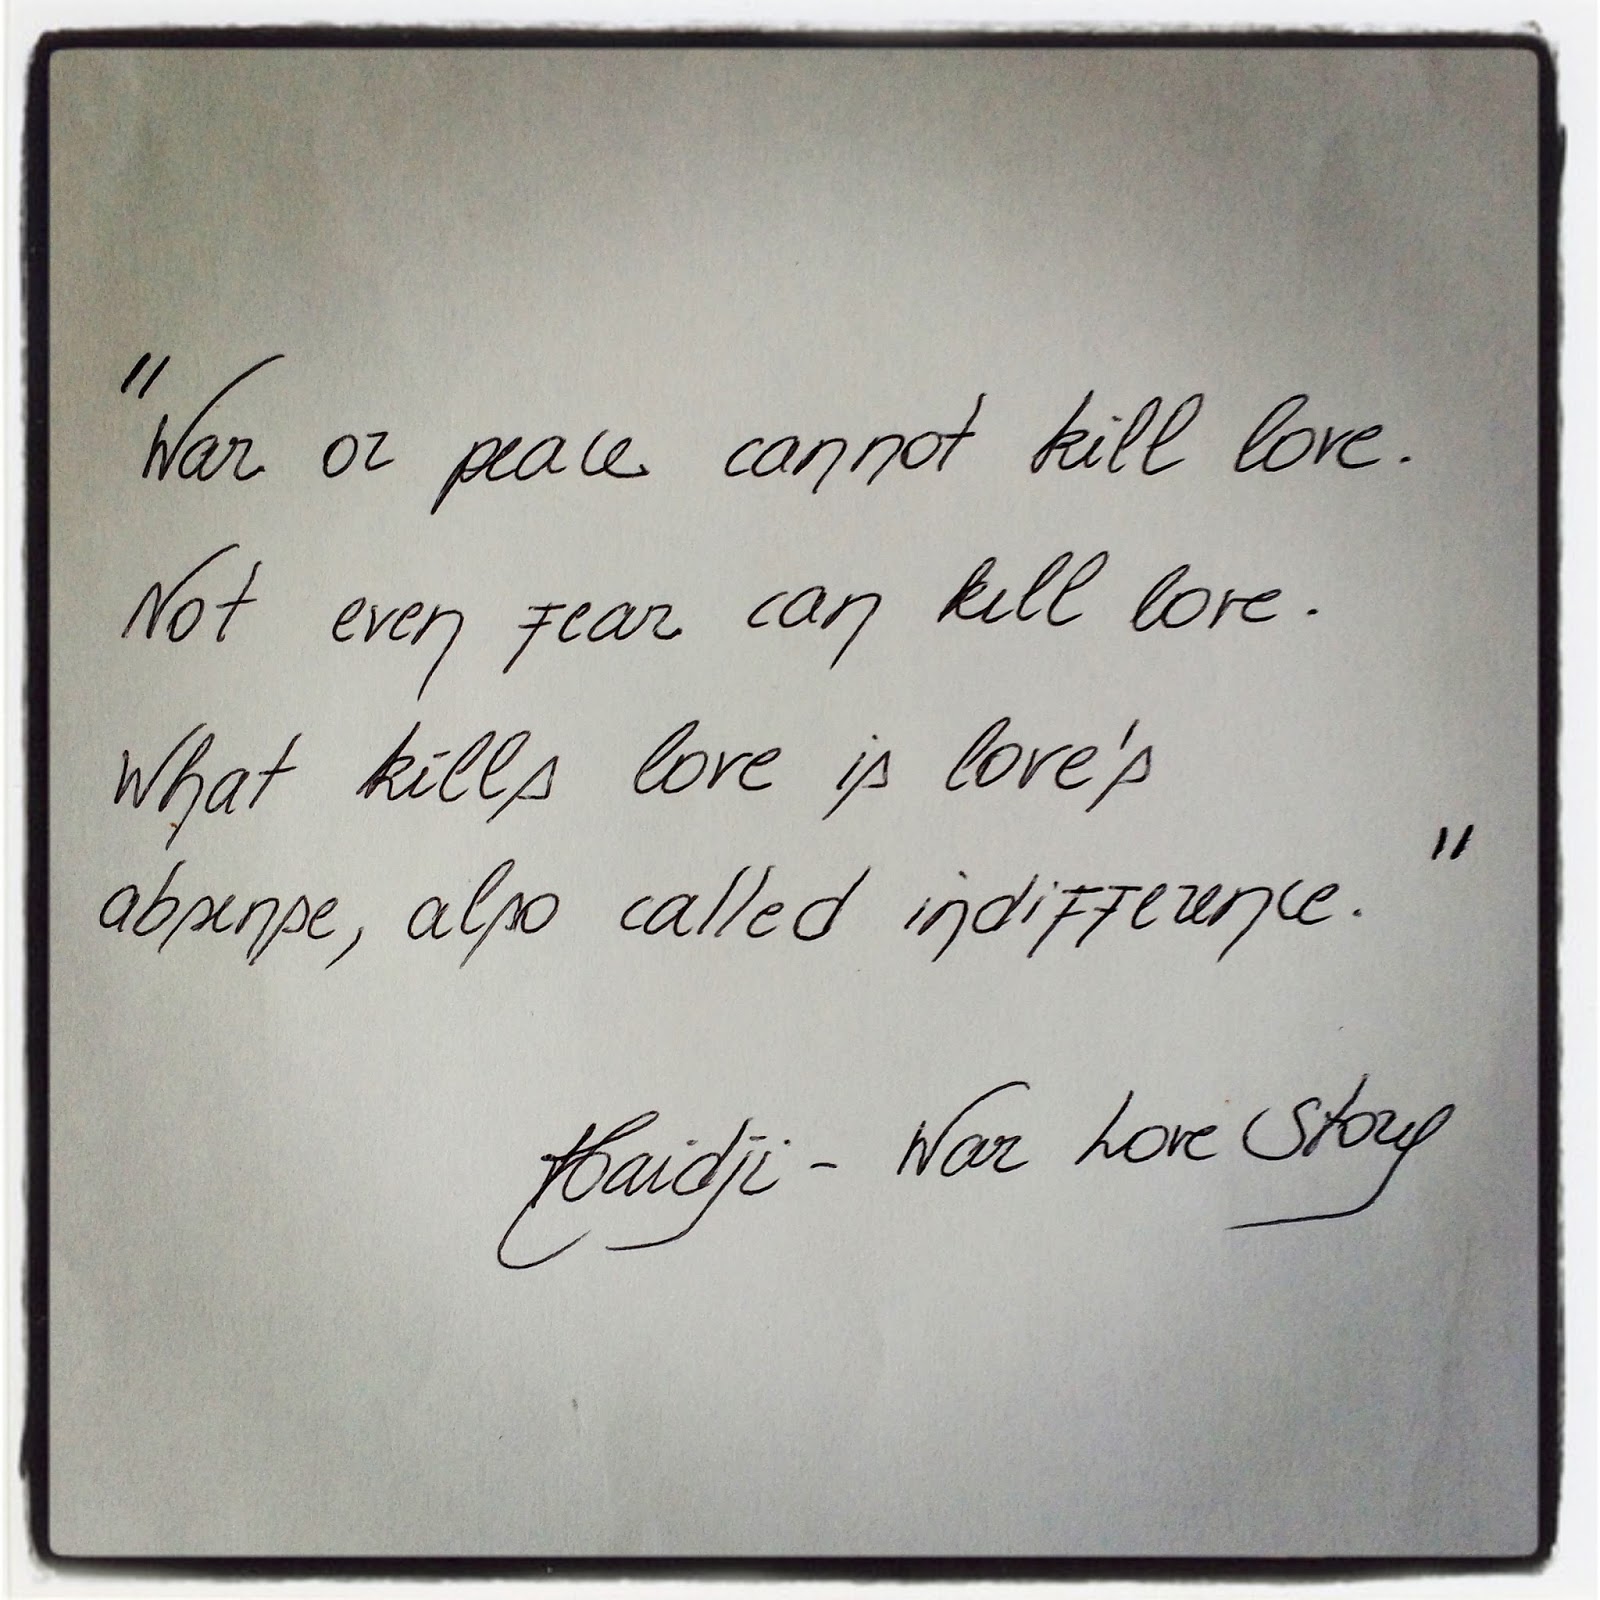 "War or peace cannot kill love.
Not even fear can kill love.
What kills love is love's
absense, also called indifference."
Haidji - War Love Story